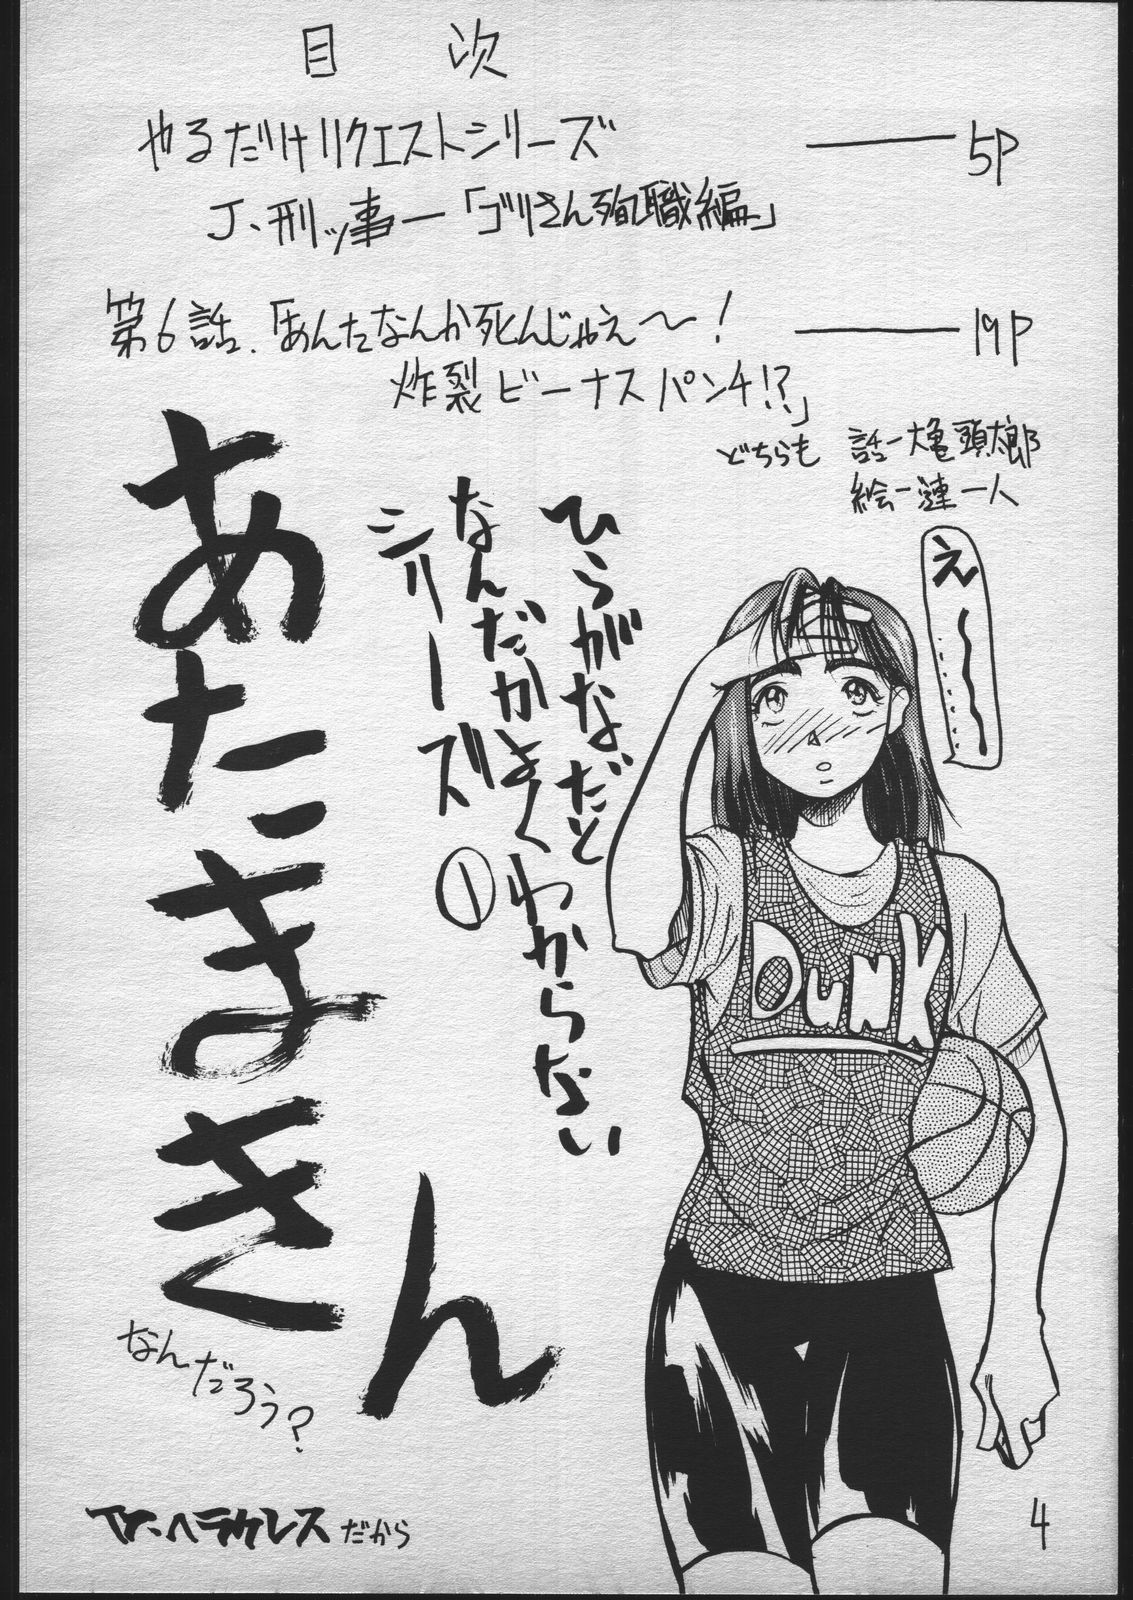 目 次
やるだけリクエストシリーズ ―― 5P
J、刑ッ事―「ゴリさん殉職編」
第6話、「あんたなんか死んじゃえ〜! ―― 19P
炸裂ビーナスパンチ!?」
どちらも 話-大亀頭太郎
絵-漣一人
え〜
ひらがなだと
なんだかよくわからない
シリーズ①
あたまさん
なんだろう?
DUNK
ヘラクレスだから
4